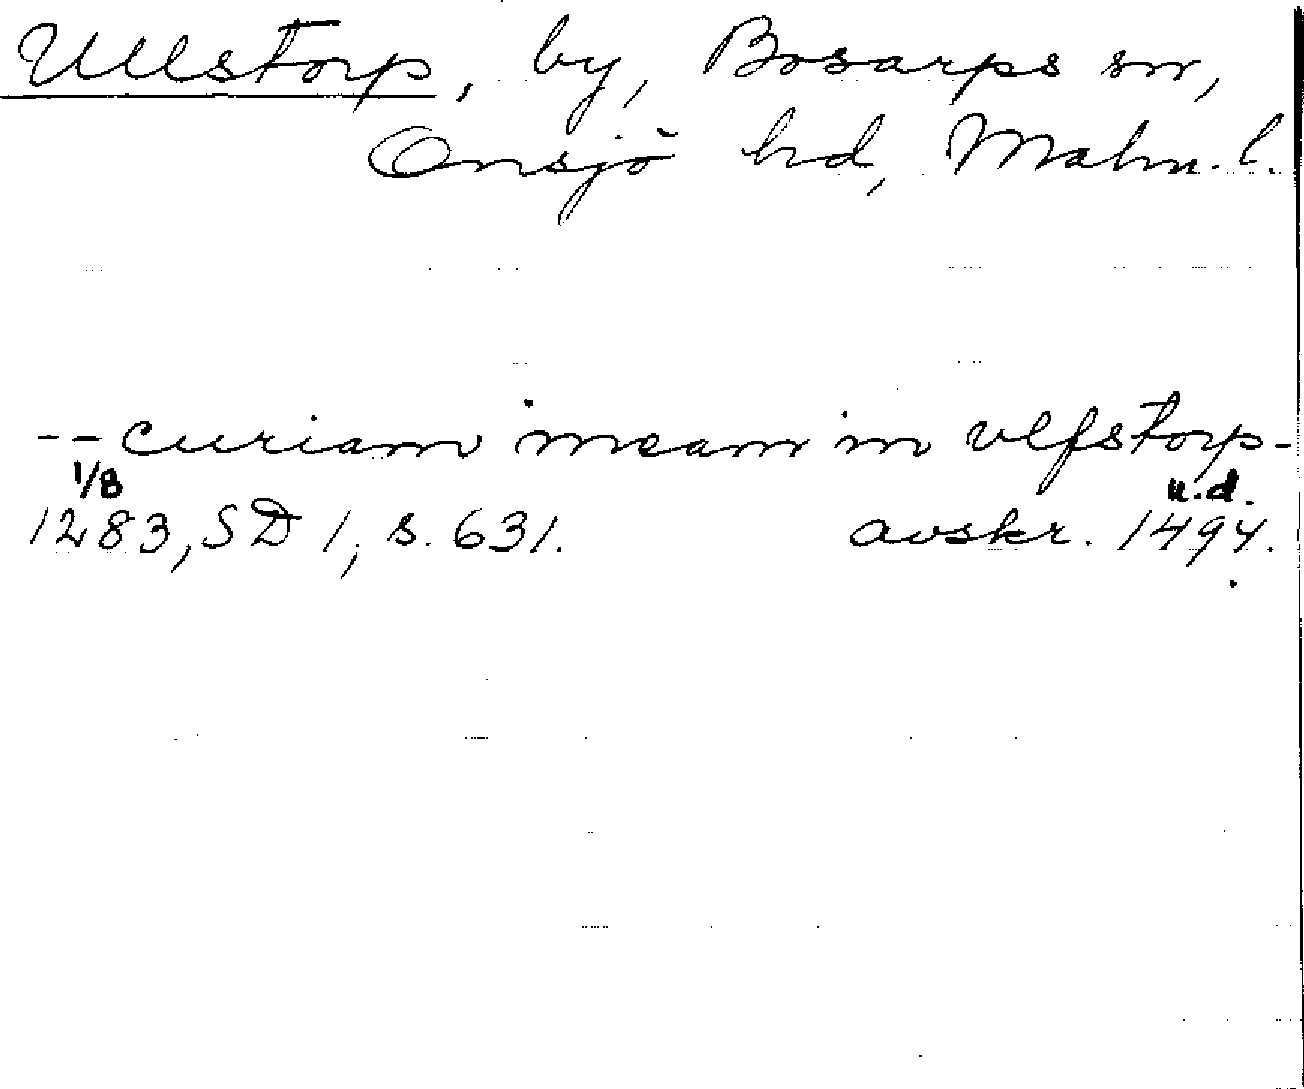 Ullstorp, by, Bosarps sn,
Onsjö hd, Malm. l.
-- curiam meam in vlfstorp-
1/8 u.d.
1283, SD 1, s. 631. avskr. 1494.